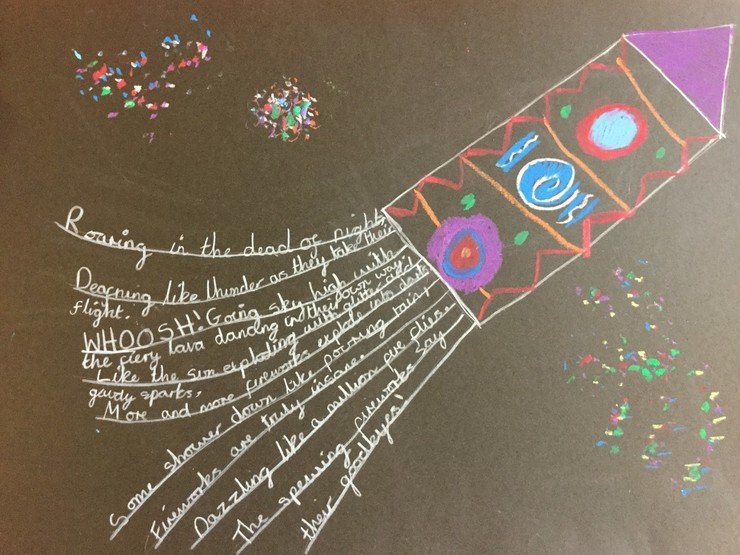 Roaring in the dead of night,
Deafning like thunder as they take their
flight.
WHOOSH! Going sky high with
the fiery lava dancing in their own way.
Like the sun exploding with glitter and
gaudy sparks,
More and more fireworks explode into dark
Some shower down like pouring rain,
Fireworks are truly insane.
Dazzling like a million fire flies.
The spewing fireworks say
their goodbyes!